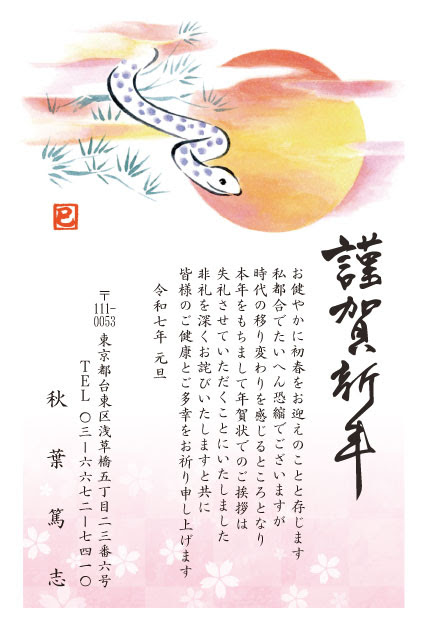 謹賀新年
お健やかに初春をお迎えのことと存じます
私都合でたいへん恐縮でございますが
時代の移り変わりを感じるところとなり
本年をもちまして年賀状でのご挨拶は
失礼させていただくことにいたしました
非礼を深くお詫びいたしますと共に
皆様のご健康とご多幸をお祈り申し上げます
令和七年 元旦
〒111-0053 東京都台東区浅草橋五丁目二三番六号
TEL 〇三ー六六七二ー七四一〇
秋葉篤志
巳